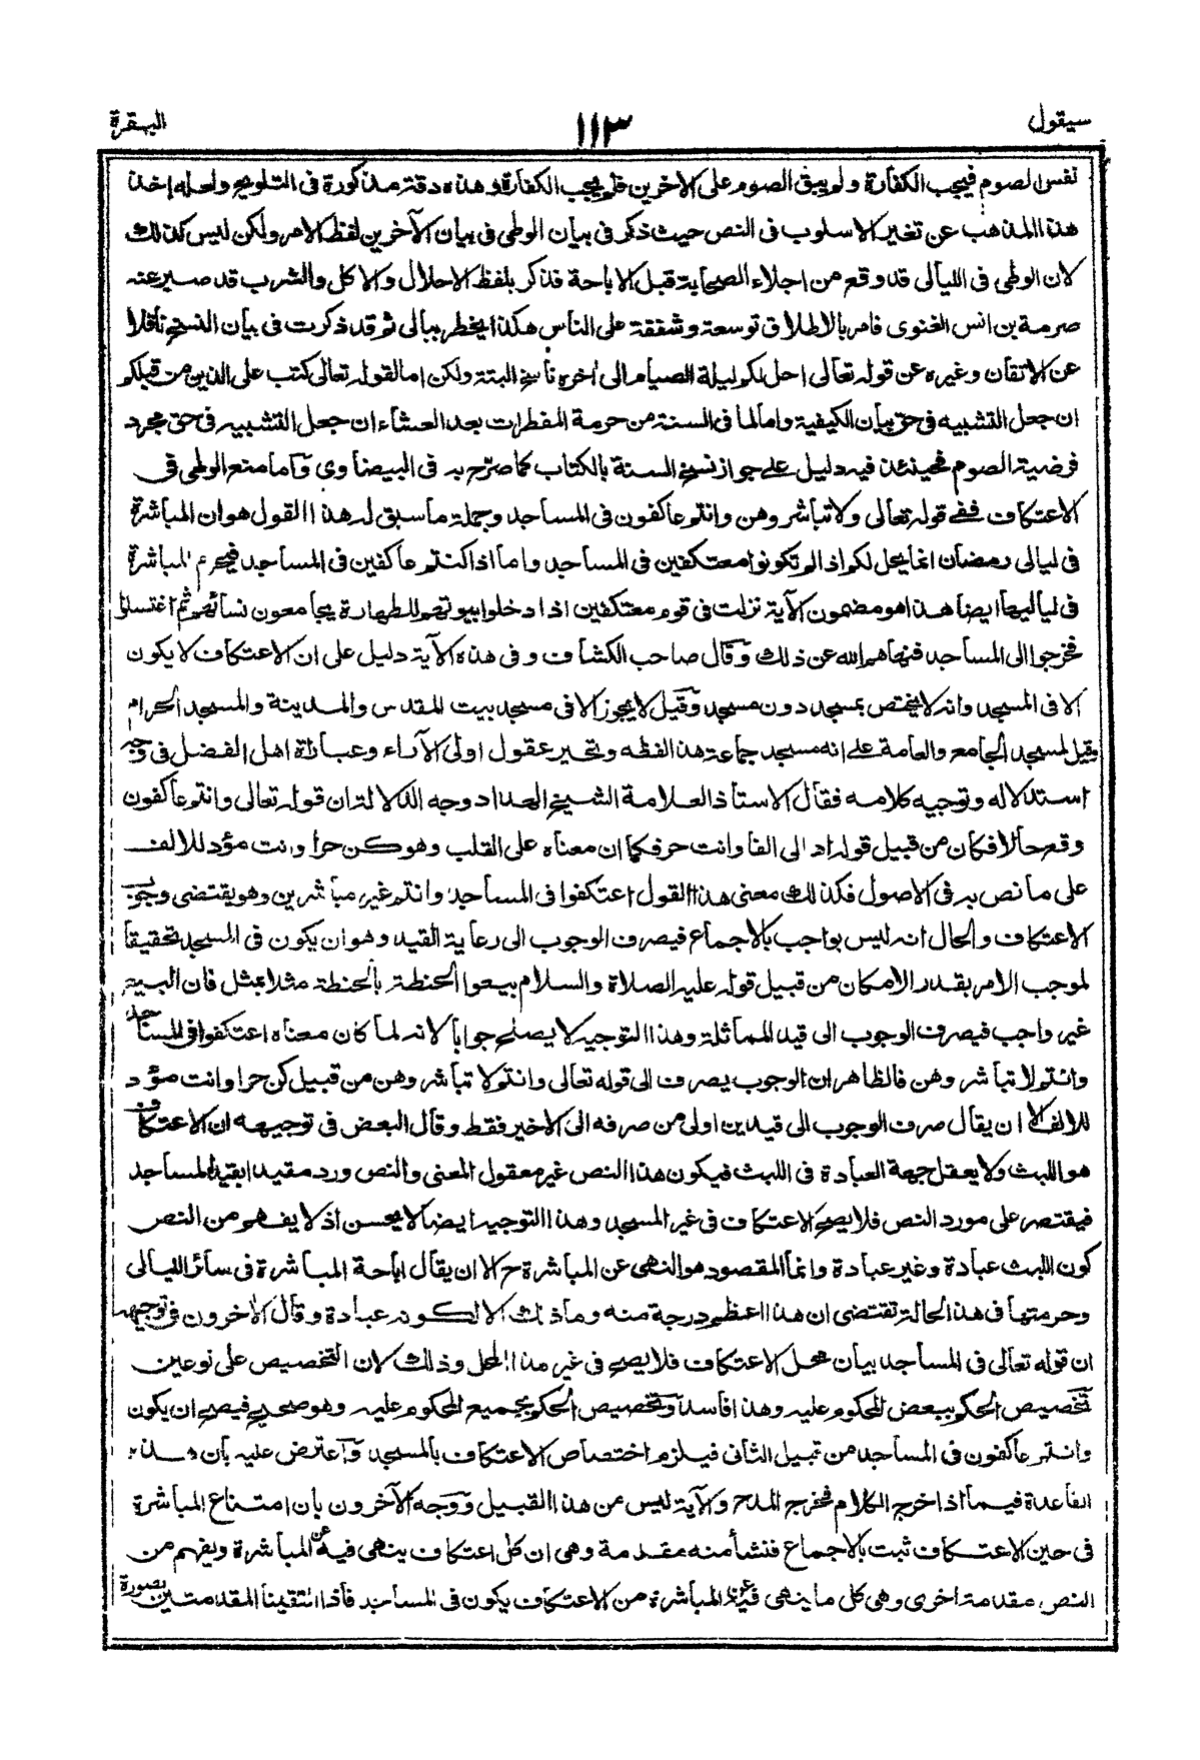 سيقول
١١٣
البقرة
نفس الصوم فيجب الكفارة ولو يبق الصوم على الاخرين فلم يجب الكفارة وهذه دقة مذكورة فى التلويح ولعله اخذ
هذا المذهب عن تغير الاسلوب فى النص حيث ذكر فى بيان الوطى فى بيان الآخرين لفظ الامر ولكن ليس كذلك
لان الوطى فى الليالى قد وقع من اجلاء الصحابة قبل الاباحة فذكر بلفظ الاحلال والاكل والشرب قد صبر عنه
صرمة بن انس الغنوى فامر بالاطلاق توسعة وشفقة على الناس هكذا يخطر ببالى ثم قد ذكرت فى بيان النسخ ناقلا
عن الاتقان وغيره عن قوله تعالى احل لكم ليلة الصيام الى اخره ناسخ البتة ولكن اما لقوله تعالى كتب على الذين من قبلكم
ان جعل التشبيه فى حق بيان الكيفية واما لما فى السنة من حرمة المفطرات بعد العشاء ان جعل التشبيه فى حق مجرد
فرضية الصوم فحينئذ فيه دليل على جواز نسخ السنة بالكتاب كما صرّح به فى البيضاوى واما منع الوطى فى
الاعتكاف ففى قوله تعالى ولا تباشروهن وانتم عاكفون فى المساجد وجملة ما سبق له هذا القول هو ان المباشرة
فى ليالى رمضان انما يحل لكم اذا لم تكونوا معتكفين فى المساجد واما اذا كنتم عاكفين فى المساجد فيحرم المباشرة
فى لياليها ايضا هذا هو مضمون الآية نزلت فى قوم معتكفين اذا دخلوا بيوتهم للطهارة يجامعون نسائهم ثم اغتسلوا
فخرجوا الى المساجد فنهاهم الله عن ذلك وقال صاحب الكشاف وفى هذه الآية دليل على ان الاعتكاف لا يكون
الا فى المسجد وانه لا يختص بمسجد دون مسجد وقيل لا يجوز الا فى مسجد بيت المقدس والمدينة والمسجد الحرام
وقيل لمسجد الجامع والعامة على انه مسجد جماعة هذا لفظه وتحير عقول اولى الآراء وعباراة اهل الفضل فى وجه
استدلاله وتوجيه كلامه فقال الاستاذ العلامة الشيخ العداد وجه الدلالة ان قوله تعالى وانتم عاكفون
وقع حالا فكان من قبيل قوله اد الى الفا وانت حر فكما ان معناه على القلب وهو كن حرا وانت مؤد للالف
على ما نص به فى الاصول فكذلك معنى هذا القول اعتكفوا فى المساجد وانتم غير مباشرين وهو يقتضى وجوب
الاعتكاف والحال انه ليس بواجب بالاجماع فيصرف الوجوب الى رعاية القيد وهو ان يكون فى المسجد تحقيقا
لموجب الامر بقدر الامكان من قبيل قوله عليه الصلاة والسلام بيعوا الحنطة بالحنطة مثلا بمثل فان البيع
غير واجب فيصرف الوجوب الى قيد المماثلة وهذا التوجيه لا يصلح جوابا لانه لما كان معناه اعتكفوا فى المساجد
وانتم لا تباشروهن فالظاهر ان الوجوب يصرف الى قوله تعالى وانتم لا تباشروهن من قبيل كن حرا وانت مؤد
للالف الا ان يقال صرف الوجوب الى قيدين اولى من صرفه الى الاخير فقط وقال البعض فى توجيهه ان الاعتكاف
هو اللبث ولا يعقل جهة العبادة فى اللبث فيكون هذا النص غير معقول المعنى والنص ورد مقيدا بقيد المساجد
فيقتصر على مورد النص فلا يصح الاعتكاف فى غير المسجد وهذا التوجيه ايضا لا يحسن اذ لا يفهم من النص
كون اللبث عبادة وغير عبادة وانما المقصود هو النهى عن المباشرة ح الا ان يقال اباحة المباشرة فى سائر الليالى
وحرمتها فى هذا الحالة تقتضى ان هذا اعظم درجة منه وما ذلك الا لكونه عبادة وقال الآخرون فى توجيهه
ان قوله تعالى فى المساجد بيان محل الاعتكاف فلا يصح فى غير هذا المحل وذلك لان التخصيص على نوعين
تخصيص الحكم ببعض المحكوم عليه وهذا فاسد وتخصيص الحكم بجميع المحكوم عليه وهو صحيح فيصح ان يكون
وانتم عاكفون فى المساجد من قبيل الثانى فيلزم اختصاص الاعتكاف بالمسجد واعترض عليه بان هذه
القاعدة فيما اذا خرج الكلام مخرج المدح والآية ليس من هذا القبيل ووجه الآخرون بان امتناع المباشرة
فى حين الاعتكاف ثبت بالاجماع فنشأ منه مقدمة وهى ان كل اعتكاف ينهى فيه عن المباشرة ويفهم من
النص مقدمة اخرى وهى كل ما ينهى فيه عن المباشرة من الاعتكاف يكون فى المساجد فاذا انتقينا المقدمتين بصورة